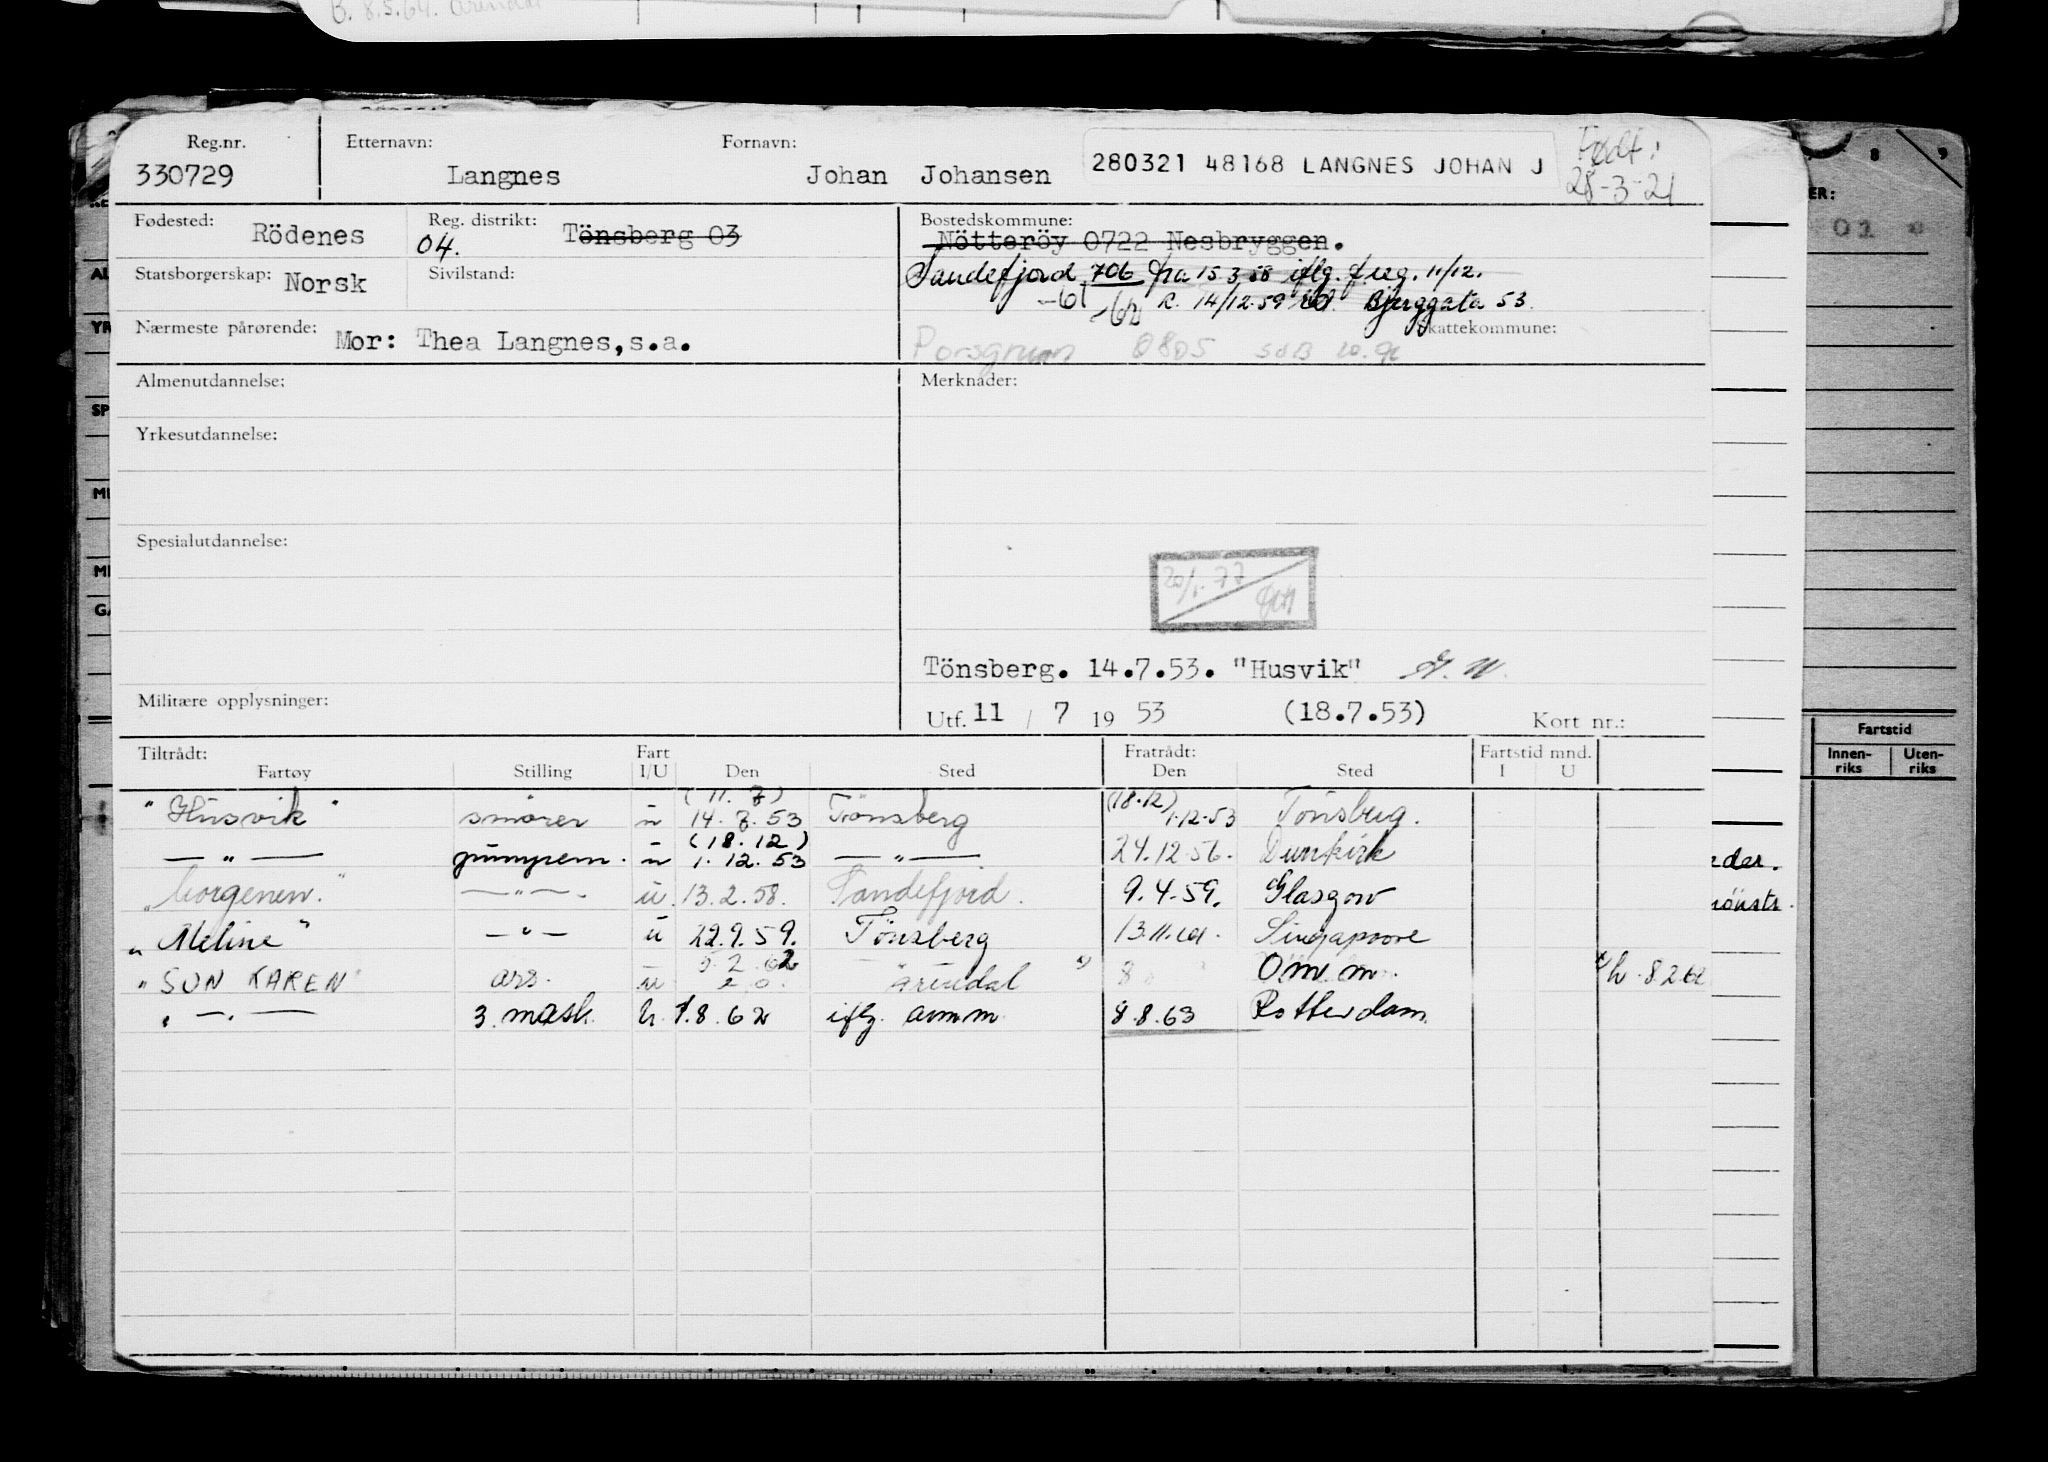 B. 8.5.64. Arendal
Reg.nr. Etternavn: Fornavn:
330729 Langnes Johan Johansen 280321 48168 LANGNES JOHAN J Født: 28-3-21
Fødested: Rödenes Reg. distrikt: 04. Tönsberg 03 Bostedskommune: Nötteröy 0722 Nesbryggen.
Statsborgerskap: Norsk Sivilstand: Sandefjord 706 fra 15.3.58 iflg. f.reg. 11/12.
-61 -62 R. 14/12-59 Bjerggata 53.
Nærmeste pårørende: Mor: Thea Langnes, s.a. Skattekommune:
Porsgrunn 0805
Almenutdannelse: Merknader:
Yrkesutdannelse:
Spesialutdannelse:
20/1-77
Tönsberg. 14.7.53. "Husvik"
Militære opplysninger: Utf. 11 / 7 19 53 (18.7.53) Kort nr.:
Tiltrådt: Fart Fratrådt: Fartstid mnd.
Fartøy Stilling I/U Den Sted Den Sted I U
(11.7) (18.12)
"Husvik" smörer u 14.7.53 Tönsberg 1.12.53 Tönsberg.
(18.12)
— " — pumpem. u 1.12.53 — " — 24.12.56. Dunkirk
"Borgenen." — " — u 13.2.58. Sandefjord. 9.4.59. Glasgow
"Meline" — " — u 22.9.59. Tönsberg 13.11.61. Singapoore
5.2.62
"SUN KAREN" ass. u Arendal x) 8 Omm. x) h. 8 2 62
" — " — 3. mask. h. 1.8.62 iflg. amm 8.8.63 Rotterdam.
ER:
02
Fartstid
Innen-riks Uten-riks